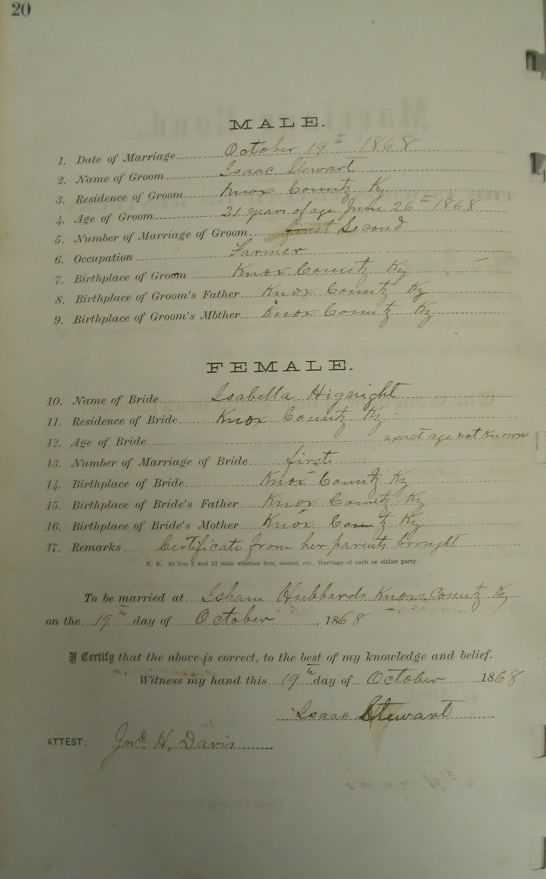 20
MALE.
1. Date of Marriage October 19th 1868
2. Name of Groom Isaac Stewart
3. Residence of Groom Knox County Ky
4. Age of Groom 21 years of age June 26th 1868
5. Number of Marriage of Groom first Second
6. Occupation Farmer
7. Birthplace of Groom Knox County Ky
8. Birthplace of Groom's Father Knox County Ky
9. Birthplace of Groom's Mother Knox County Ky
FEMALE.
10. Name of Bride Isabella Hignight
11. Residence of Bride Knox County Ky
12. Age of Bride exact age not known
13. Number of Marriage of Bride first
14. Birthplace of Bride Knox County Ky
15. Birthplace of Bride's Father Knox County Ky
16. Birthplace of Bride's Mother Knox County Ky
17. Remarks Certificate from her parents brought
N. B. At Nos. 5 and 13 state whether first, second, etc., Marriage of each or either party.
To be married at Isham Hubbards Knox County Ky
on the 19th day of October, 1868
I Certify that the above is correct, to the best of my knowledge and belief.
Witness my hand this 19th day of October 1868
Isaac Stewart
ATTEST; Jno. H. Davis